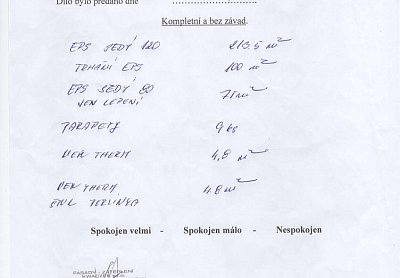 Dílo bylo předáno dne ..............................
Kompletní a bez závad.
EPS ŠEDÝ 120 213,5 m²
TRHÁNÍ EPS 100 m²
EPS ŠEDÝ 80 71 m²
JEN LEPENÍ
PARAPETY 9 ks
THERM 4,8 m²
THERM 4.8 m²
Spokojen velmi - Spokojen málo - Nespokojen
FASÁDY - ZATEPLENÍ